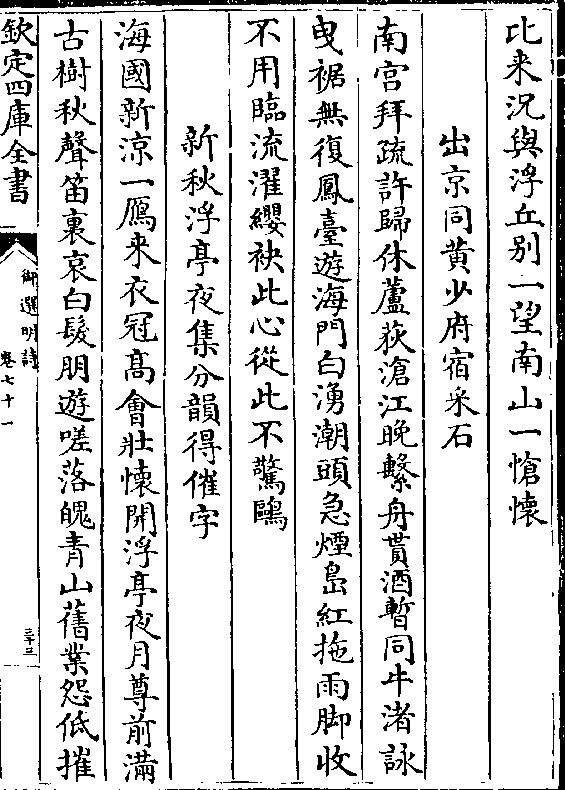 比来況與浮丘别一望南山一愴懷
出京同黄少府宿采石
南宫拜疏許歸休蘆荻滄江晚繫舟貰酒暫同牛渚詠
曳裾無復鳳臺遊海門白湧潮頭急煙島紅拖雨脚收
不用臨流濯纓袂此心從此不驚鷗
新秋浮亭夜集分韻得催字
海國新涼一鴈来衣冠髙會壯懷開浮亭夜月尊前滿
古樹秋聲笛裏哀白髮朋遊嗟落魄青山舊業怨低摧
欽定四庫全書
御選明詩
卷七十一
三十三